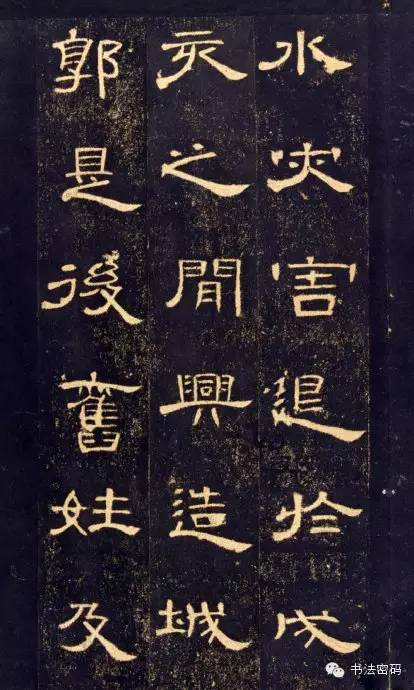 水灾害退於戌
亥之間興造城
郭是後舊姓及
书法密码